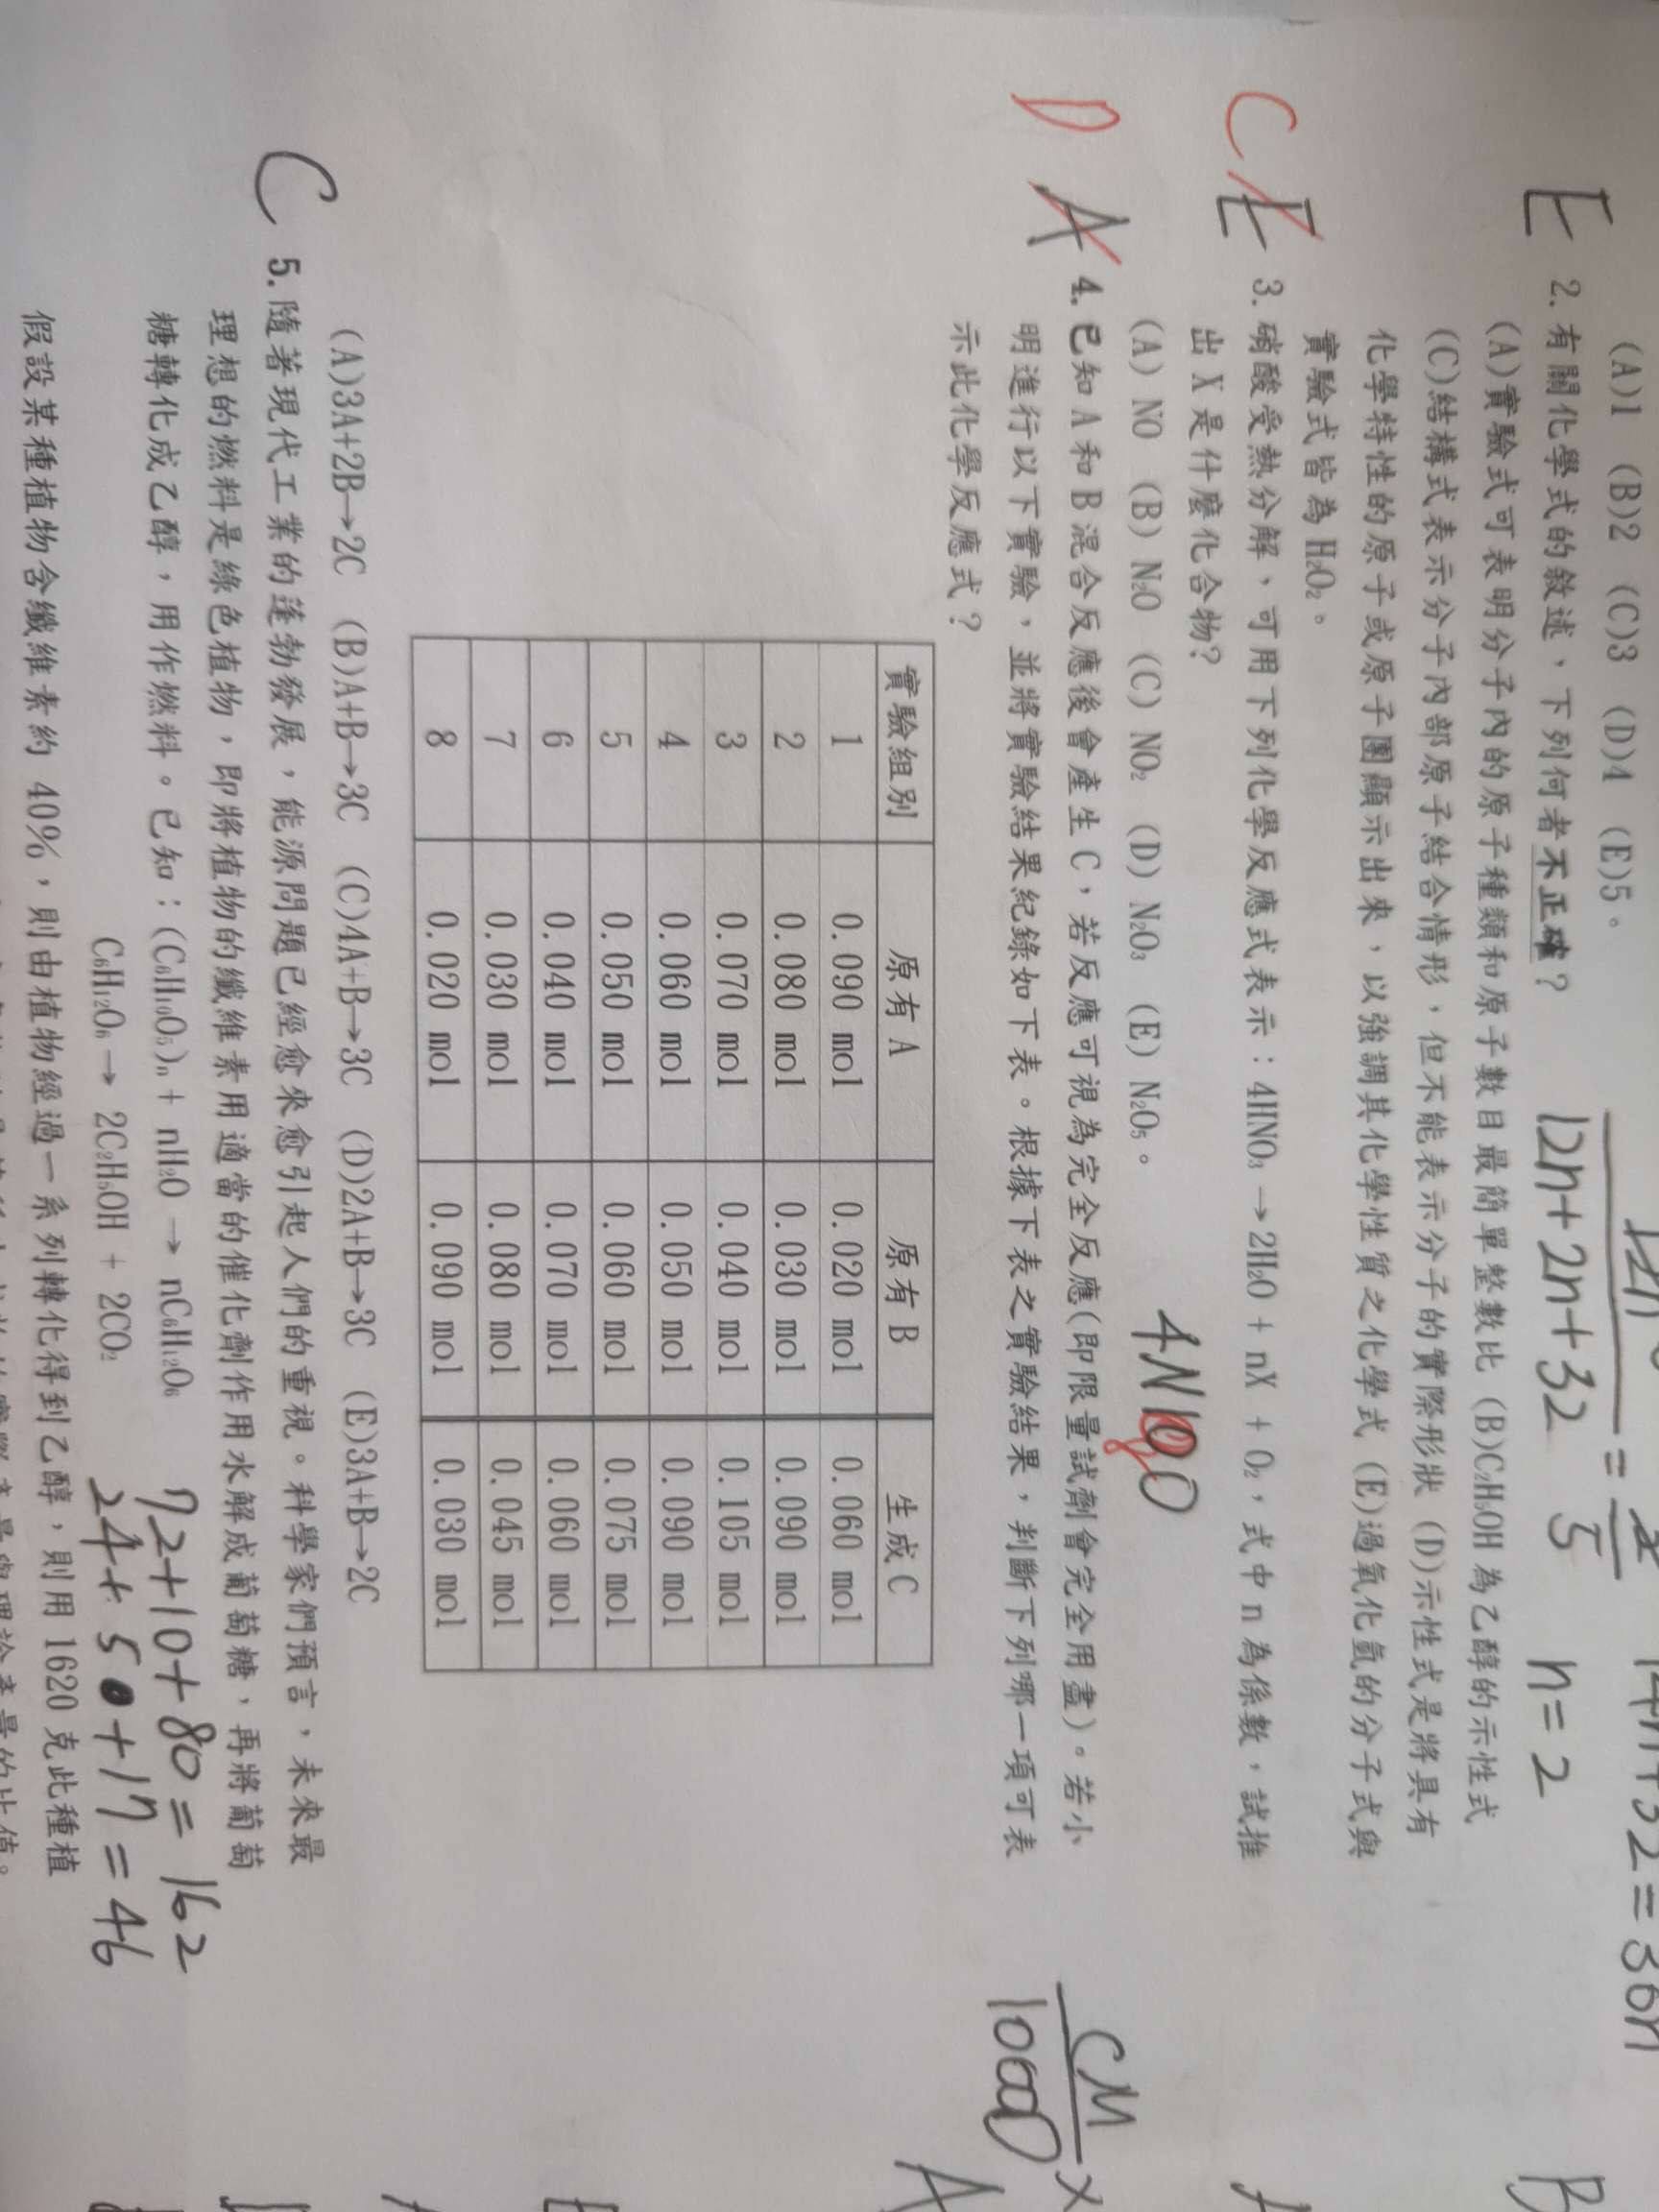 (A)1 (B)2 (C)3 (D)4 (E)5。
12n+2n+32 5 n=2
E 2.有關化學式的敘述,下列何者不正確?
(A)實驗式可表明分子內的原子種類和原子數目最簡單整數比 (B)C₂H₅OH 為乙醇的示性式
(C)結構式表示分子內部原子結合情形,但不能表示分子的實際形狀 (D)示性式是將具有
化學特性的原子或原子團顯示出來,以強調其化學性質之化學式 (E)過氧化氫的分子式與
實驗式皆為 H₂O₂。
C E 3.硝酸受熱分解,可用下列化學反應式表示:4HNO₃ → 2H₂O + nX + O₂,式中 n 為係數,試推
出 X 是什麼化合物?
(A) NO (B) N₂O (C) NO₂ (D) N₂O₃ (E) N₂O₅。
D A 4.已知 A 和 B 混合反應後會產生 C,若反應可視為完全反應(即限量試劑會完全用盡)。若小
明進行以下實驗,並將實驗結果紀錄如下表。根據下表之實驗結果,判斷下列哪一項可表
示此化學反應式?
實驗組別 原有 A 原有 B 生成 C
1 0.090 mol 0.020 mol 0.060 mol
2 0.080 mol 0.030 mol 0.090 mol
3 0.070 mol 0.040 mol 0.105 mol
4 0.060 mol 0.050 mol 0.090 mol
5 0.050 mol 0.060 mol 0.075 mol
6 0.040 mol 0.070 mol 0.060 mol
7 0.030 mol 0.080 mol 0.045 mol
8 0.020 mol 0.090 mol 0.030 mol
(A)3A+2B→2C (B)A+B→3C (C)4A+B→3C (D)2A+B→3C (E)3A+B→2C
C 5.隨著現代工業的蓬勃發展,能源問題已經愈來愈引起人們的重視。科學家們預言,未來最
理想的燃料是綠色植物,即將植物的纖維素用適當的催化劑作用水解成葡萄糖,再將葡萄
糖轉化成乙醇,用作燃料。已知:(C₆H₁₀O₅)ₙ + nH₂O → nC₆H₁₂O₆
72+10+80=162
C₆H₁₂O₆ → 2C₂H₅OH + 2CO₂
24+5+17=46
假設某種植物含纖維素約 40%,則由植物經過一系列轉化得到乙醇,則用 1620 克此種植